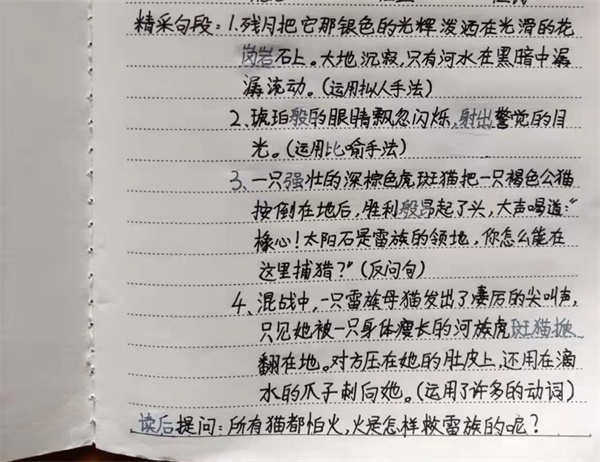 精采句段:1.残月把它那银色的光辉泼洒在光滑的花
岗岩石上。大地沉寂,只有河水在黑暗中潺
潺流动。(运用拟人手法)
2、琥珀般的眼睛飘忽闪烁,射出警觉的目
光。(运用比喻手法)
3、一只强壮的深棕色虎斑猫把一只褐色公猫
按倒在地后,胜利般昂起了头,大声喝道:“
橡心!太阳石是雷族的领地,你怎么能在
这里捕猎?”(反问句)
4、混战中,一只雷族母猫发出了凄厉的尖叫声,
只见她被一只身体瘦长的河族虎斑猫掀
翻在地。对方压在她的肚皮上,还用在滴
水的爪子刺向她。(运用了许多的动词)
读后提问:所有猫都怕火,火是怎样救雷族的呢?